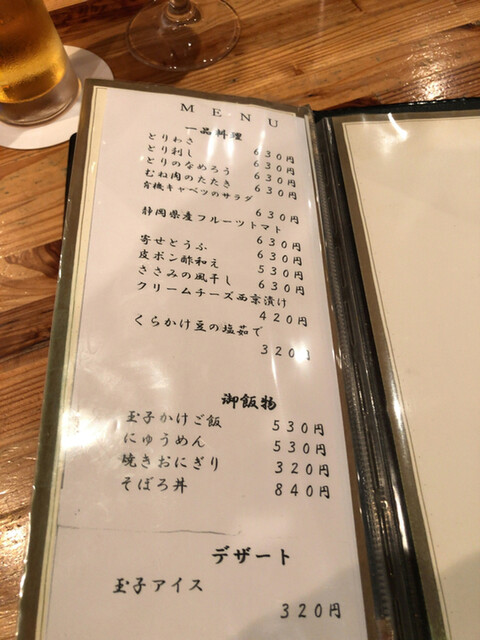 MENU
一品料理
とりわさ 630円
とり刺し 630円
とりのなめろう 630円
むね肉のたたき 630円
有機キャベツのサラダ
630円
静岡県産フルーツトマト
630円
寄せとうふ 630円
皮ポン酢和え 530円
ささみの風干し 630円
クリームチーズ西京漬け
420円
くらかけ豆の塩茹で
320円
御飯物
玉子かけご飯 530円
にゅうめん 530円
焼きおにぎり 320円
そぼろ丼 840円
デザート
玉子アイス
320円